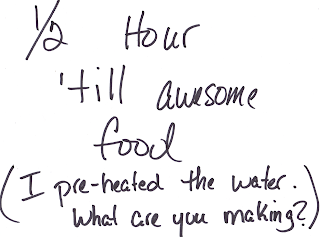 1/2 Hour
'till awesome
food
(I pre-heated the water.
What are you making?)